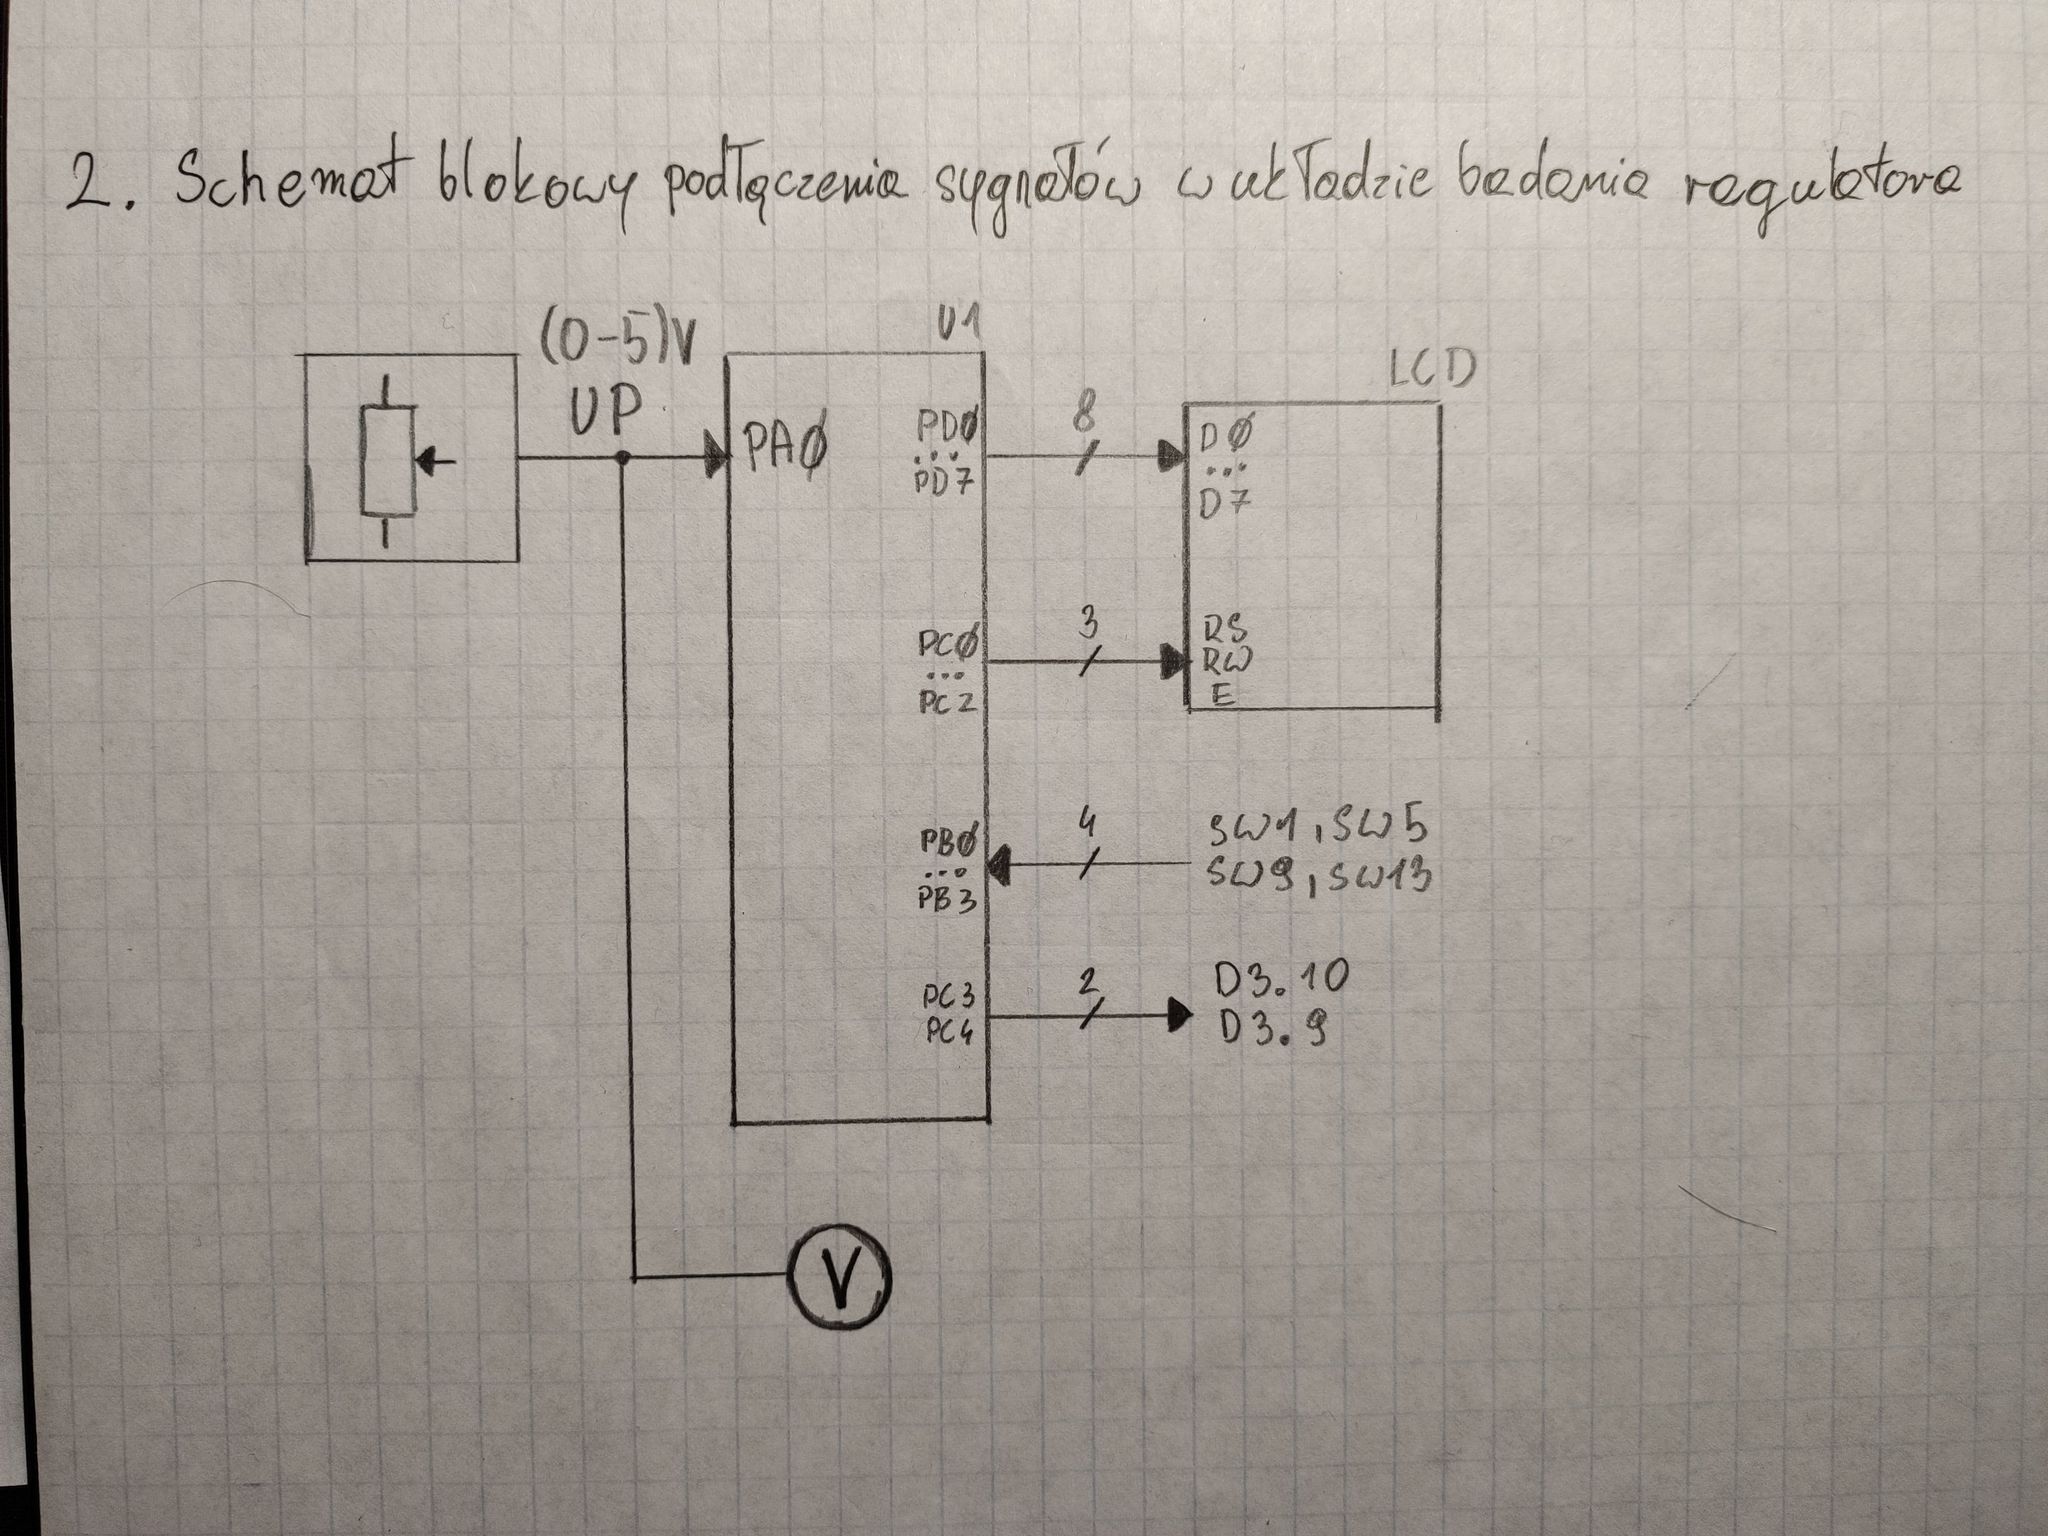 2. Schemat blokowy podłączenia sygnałów w układzie badania regulatora
(0-5)V
UP
U1
LCD
PAØ
PDØ
...
PD7
8
DØ
...
D7
PCØ
...
PC2
3
RS
RW
E
PBØ
...
PB3
4
SW1, SW5
SW9, SW13
PC3
PC4
2
D3.10
D3.9
V